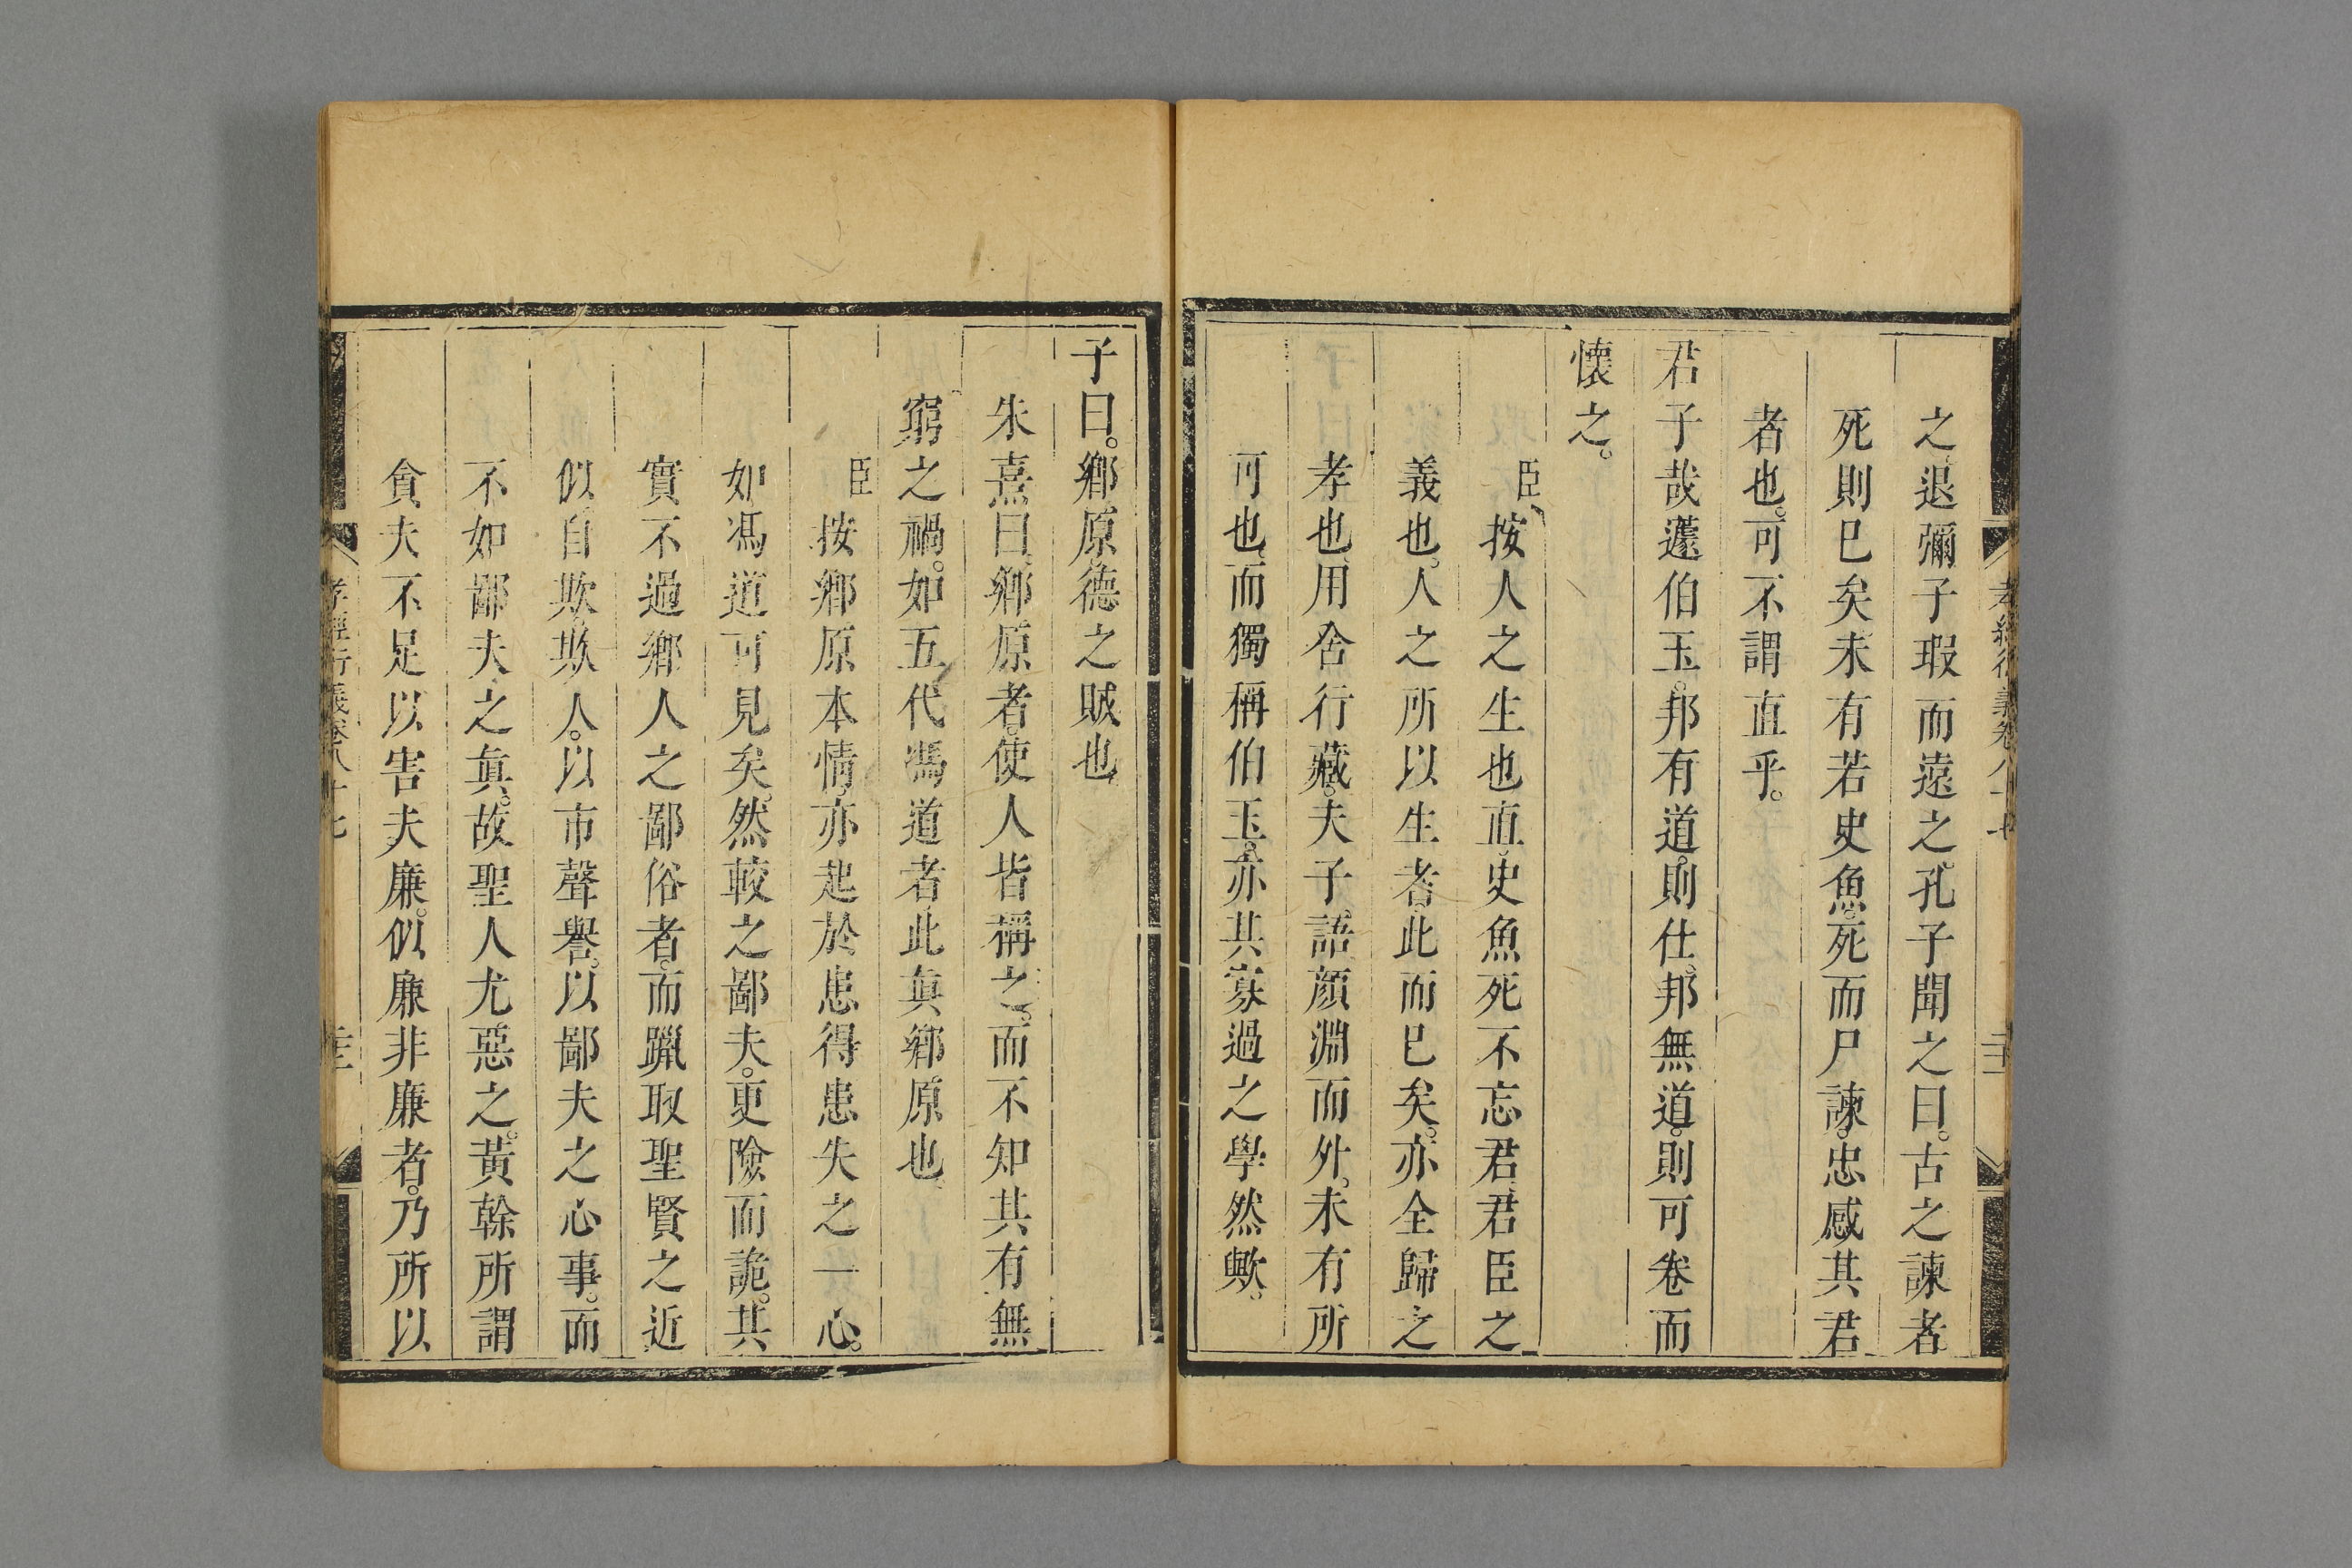 之退彌子瑕而遠之孔子聞之曰。古之諫者。
死則巳矣未有若史魚。死而尸諫。忠感其君
者也。可不謂直乎。
君子哉蘧伯玉。邦有道。則仕。邦無道。則可卷而
懷之。
臣按人之生也直。史魚死不忘君君臣之
義也。人之所以生者。此而巳矣。亦全歸之
孝也用舍行藏。夫子語顏淵而外。未有所
可也。而獨稱伯玉。亦其寡過之學然歟。
子曰。鄉原德之賊也
朱熹曰鄉原者。使人皆稱之。而不知其有無
窮之禍。如五代馮道者此眞鄉原也
臣按鄉原本情。亦起於患得患失之一心。
如馮道可見矣。然較之鄙夫。更險而詭。其
實不過鄉人之鄙俗者。而躐取聖賢之近
似自欺欺人。以市聲譽。以鄙夫之心事。而
不如鄙夫之眞。故聖人尤惡之。黃榦所謂
貪夫不足以害夫廉。似廉非廉者。乃所以